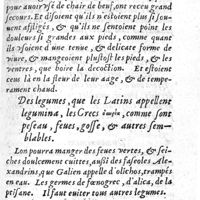 pour auoir vsé de chair de beuf, ont receu grand
secours. Et disoient qu'ils n'estoient plus si souuent
affligés, & qu'ils ne sentoient point les
douleurs si grandes aux pieds, comme quant
ils vsoient d'une tenue, & delicate forme de
viure, & mangeoient plustost les pieds, & les
ventres, que boire la decoction. Et estoient
ceus là en la fleur de leur aage, & de temperament
chaud.
Des legumes, que les Latins appellent
legumina, les Grecs comme sont
peseau, feues, gosse, & autres semblables.
Lon pourra manger des feues vertes, & seiches
doulcement cuittes, aussi des faseoles Alexandrins,
que Galien appelle dolichos, trampés
en eau. Les germes de fœnogrec, d'alica, de la
ptisane. Il faut euiter tous autres legumes.